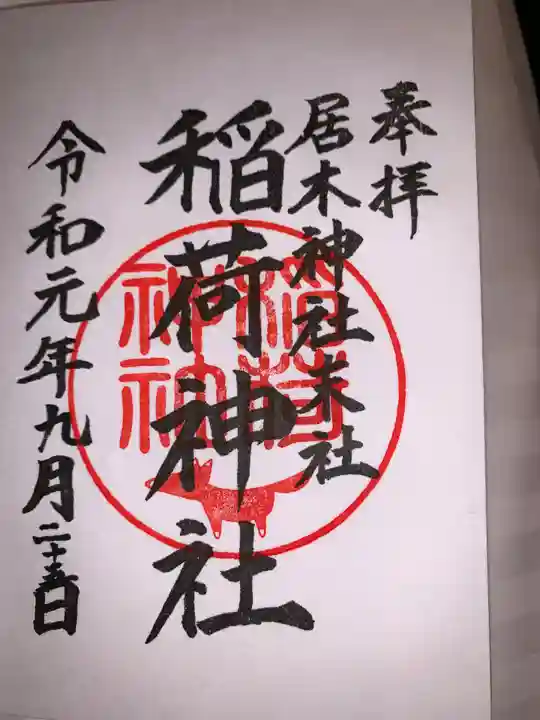 奉拝
居木神社末社
稲荷神社
令和元年九月二十五日